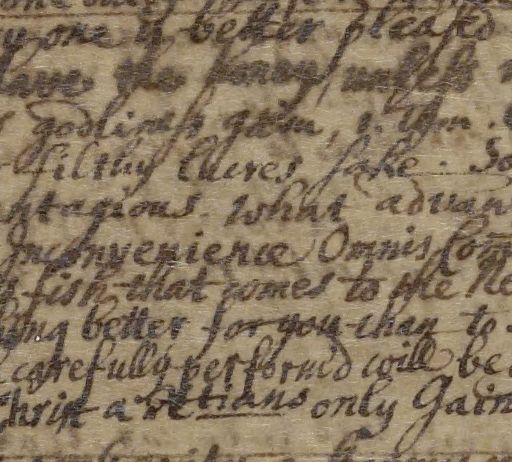 one is better pleased
have the
godliness gain, 1. Tym.
filthy lucres sake. So
ntagious. what advan
Inconvenience Omnis Com
fish that comes to the Ne
ing better for you than to
carefully perform'd will be
Christ are tians only Gain